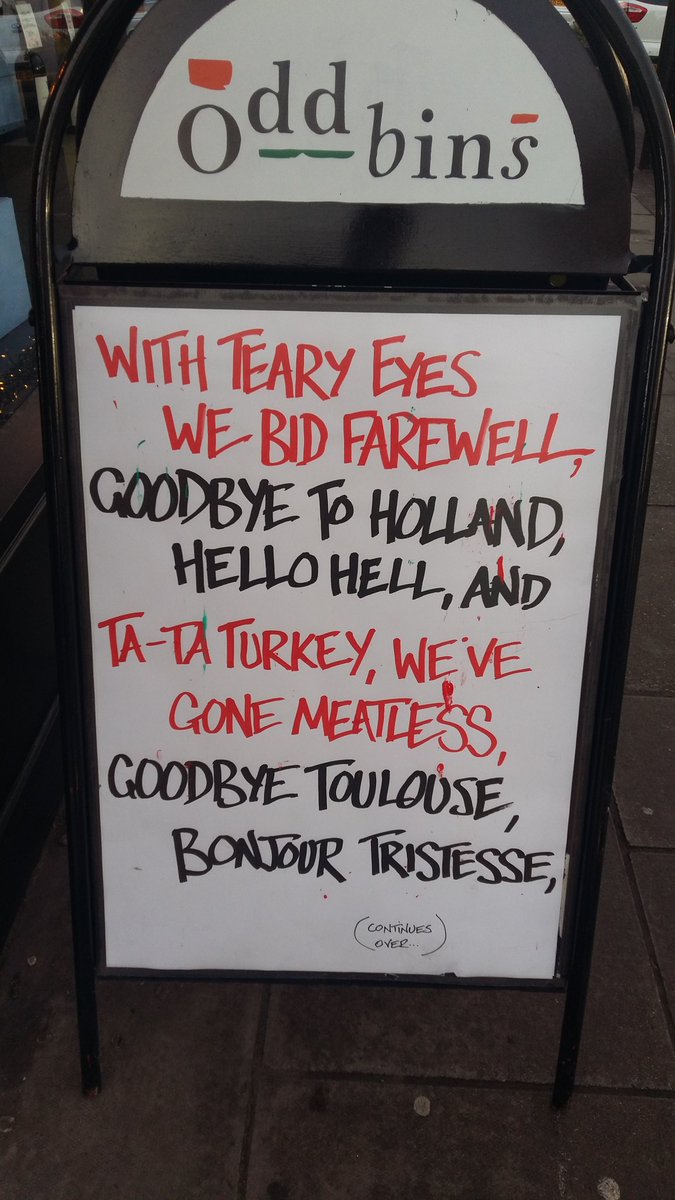 Oddbins
WITH TEARY EYES
WE BID FAREWELL,
GOODBYE TO HOLLAND,
HELLO HELL, AND
TA-TA TURKEY, WE'VE
GONE MEATLESS,
GOODBYE TOULOUSE,
BONJOUR TRISTESSE,
(CONTINUES
OVER...)